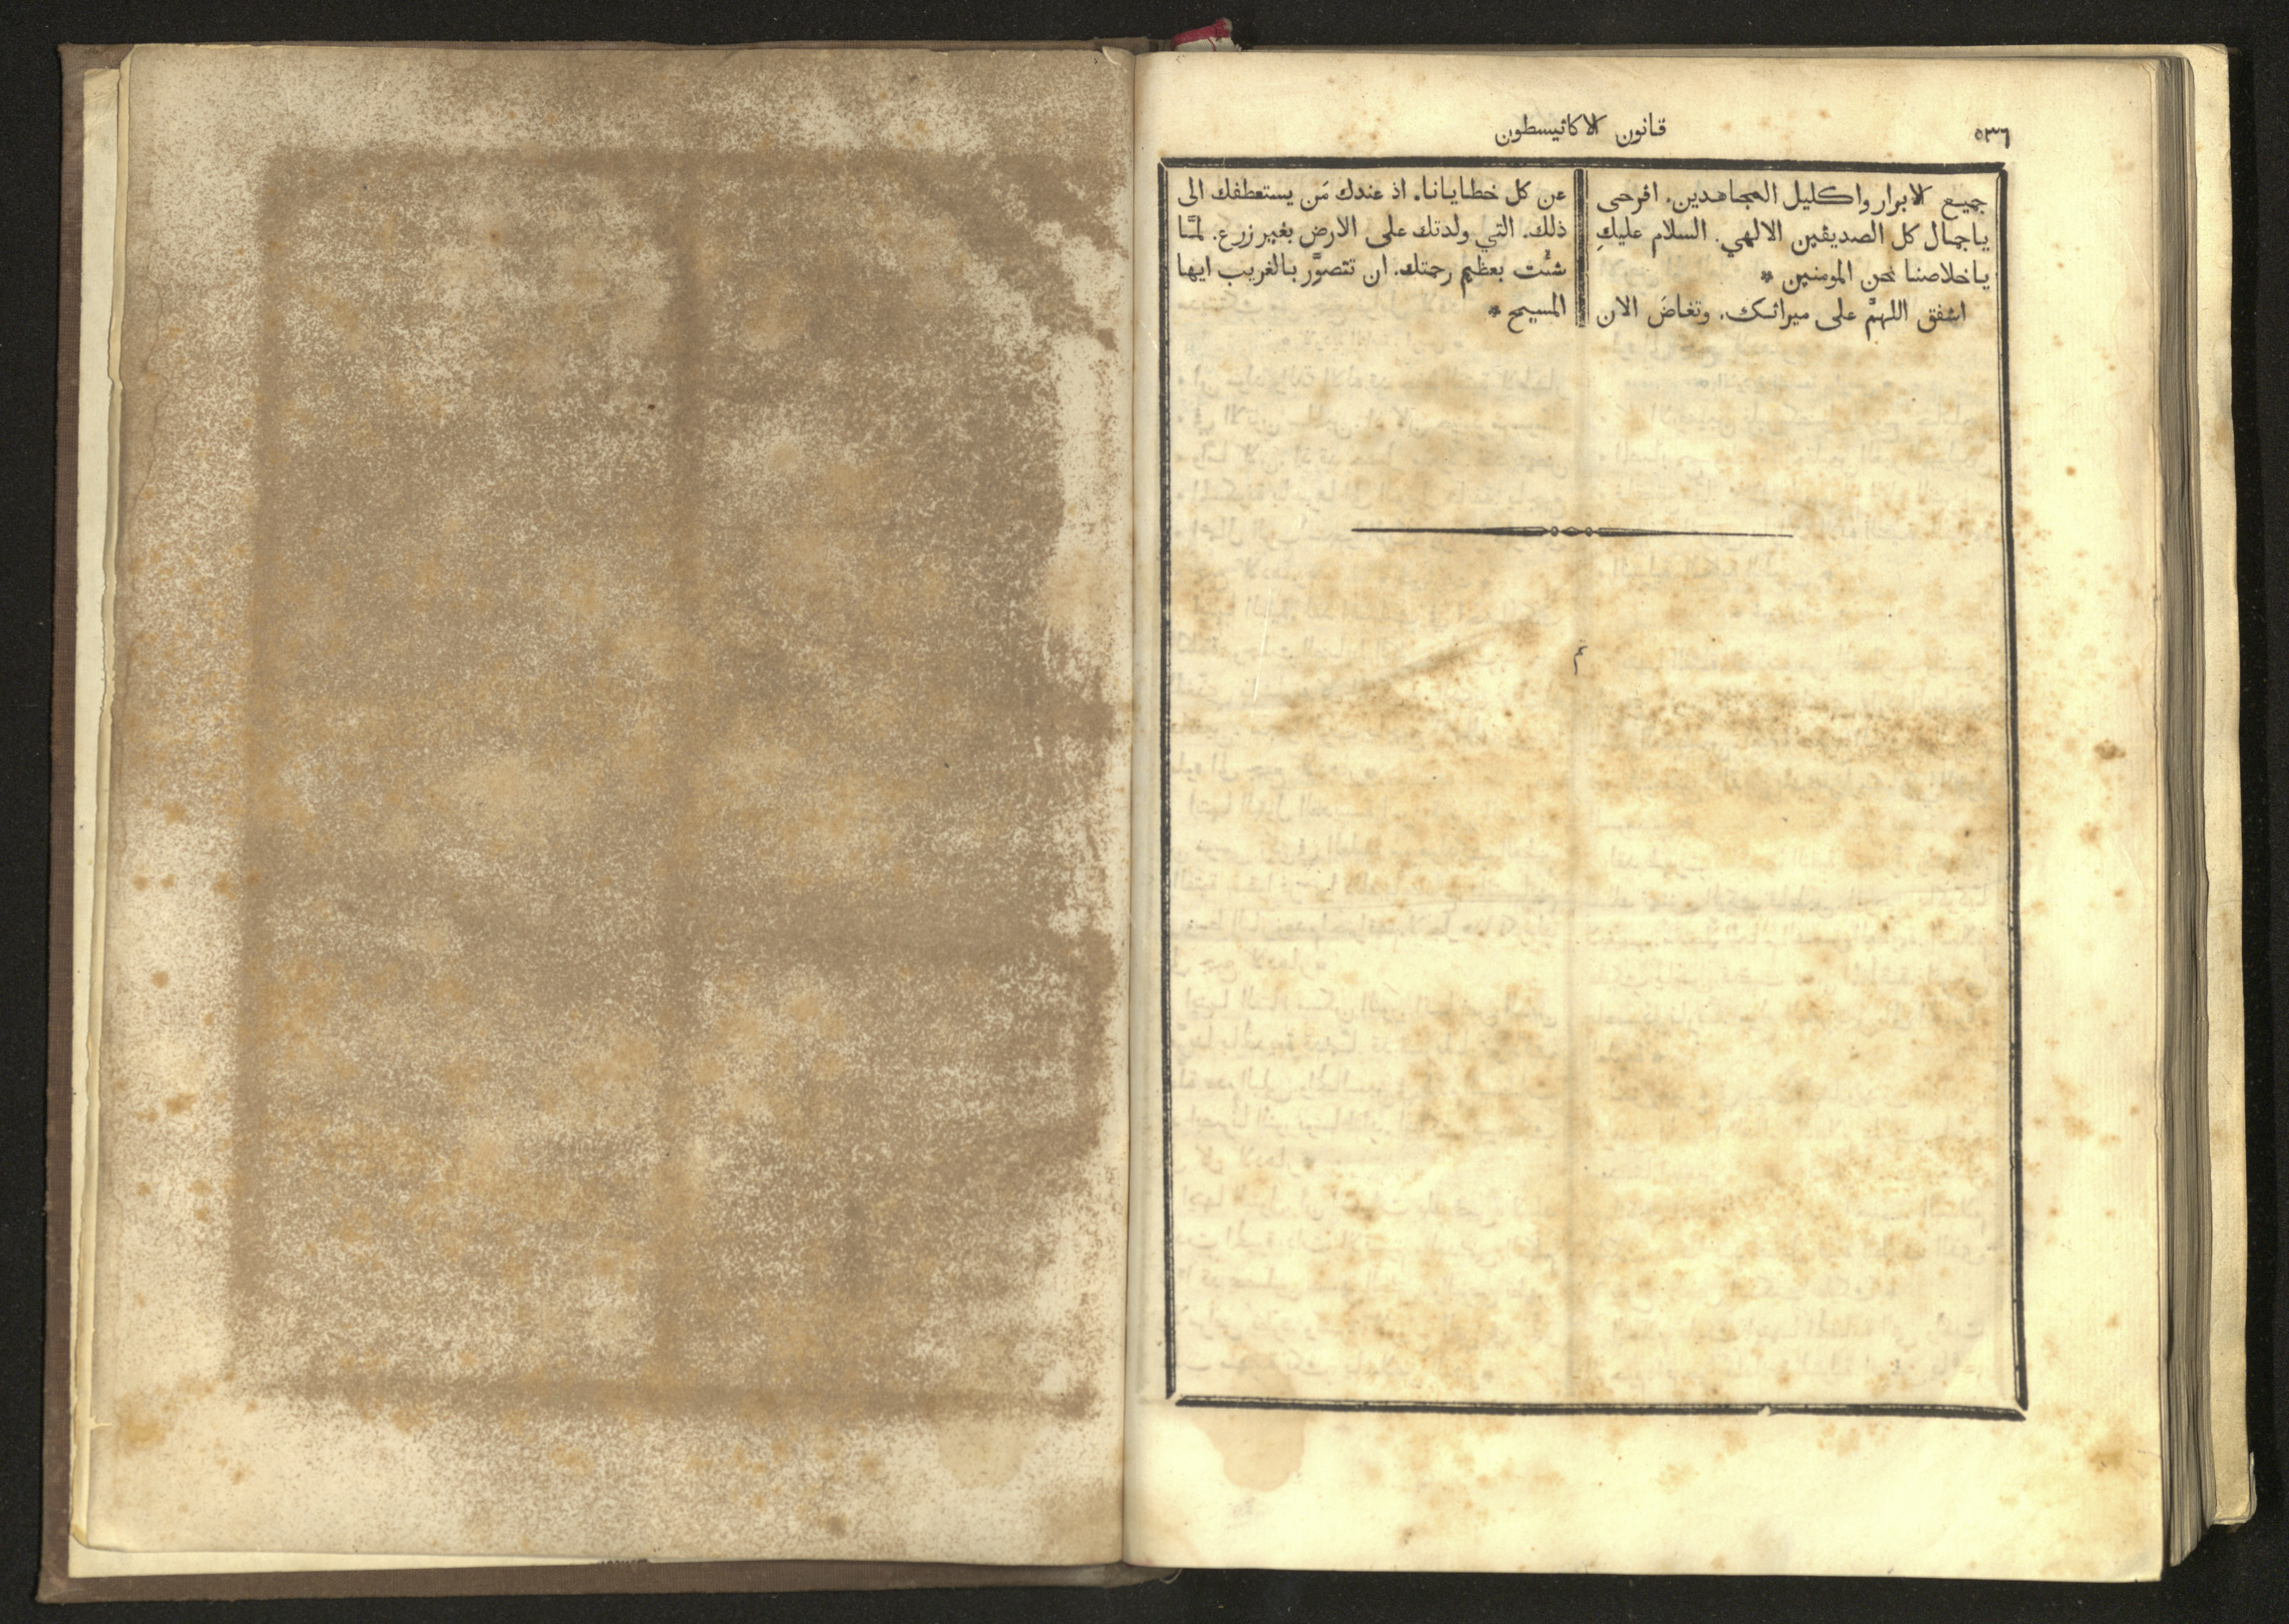 ٥٣٦
قانون الاكاثيسطون
جميع الابرار واكليل المجاهدين. افرحى
ياجمال كل الصديقين الالهي. السلام عليكِ
ياخلاصنا نحن المومنين *
اشفق اللهمَّ على ميراثك. وتغاضَ الان
عن كل خطايانا. اذ عندك مَن يستعطفك الى
ذلك. التي ولدتك على الارض بغير زرع. لمَّا
شئْت بعظيم رحمتك. ان تتصوَّر بالغريب ايها
المسيح *
تم